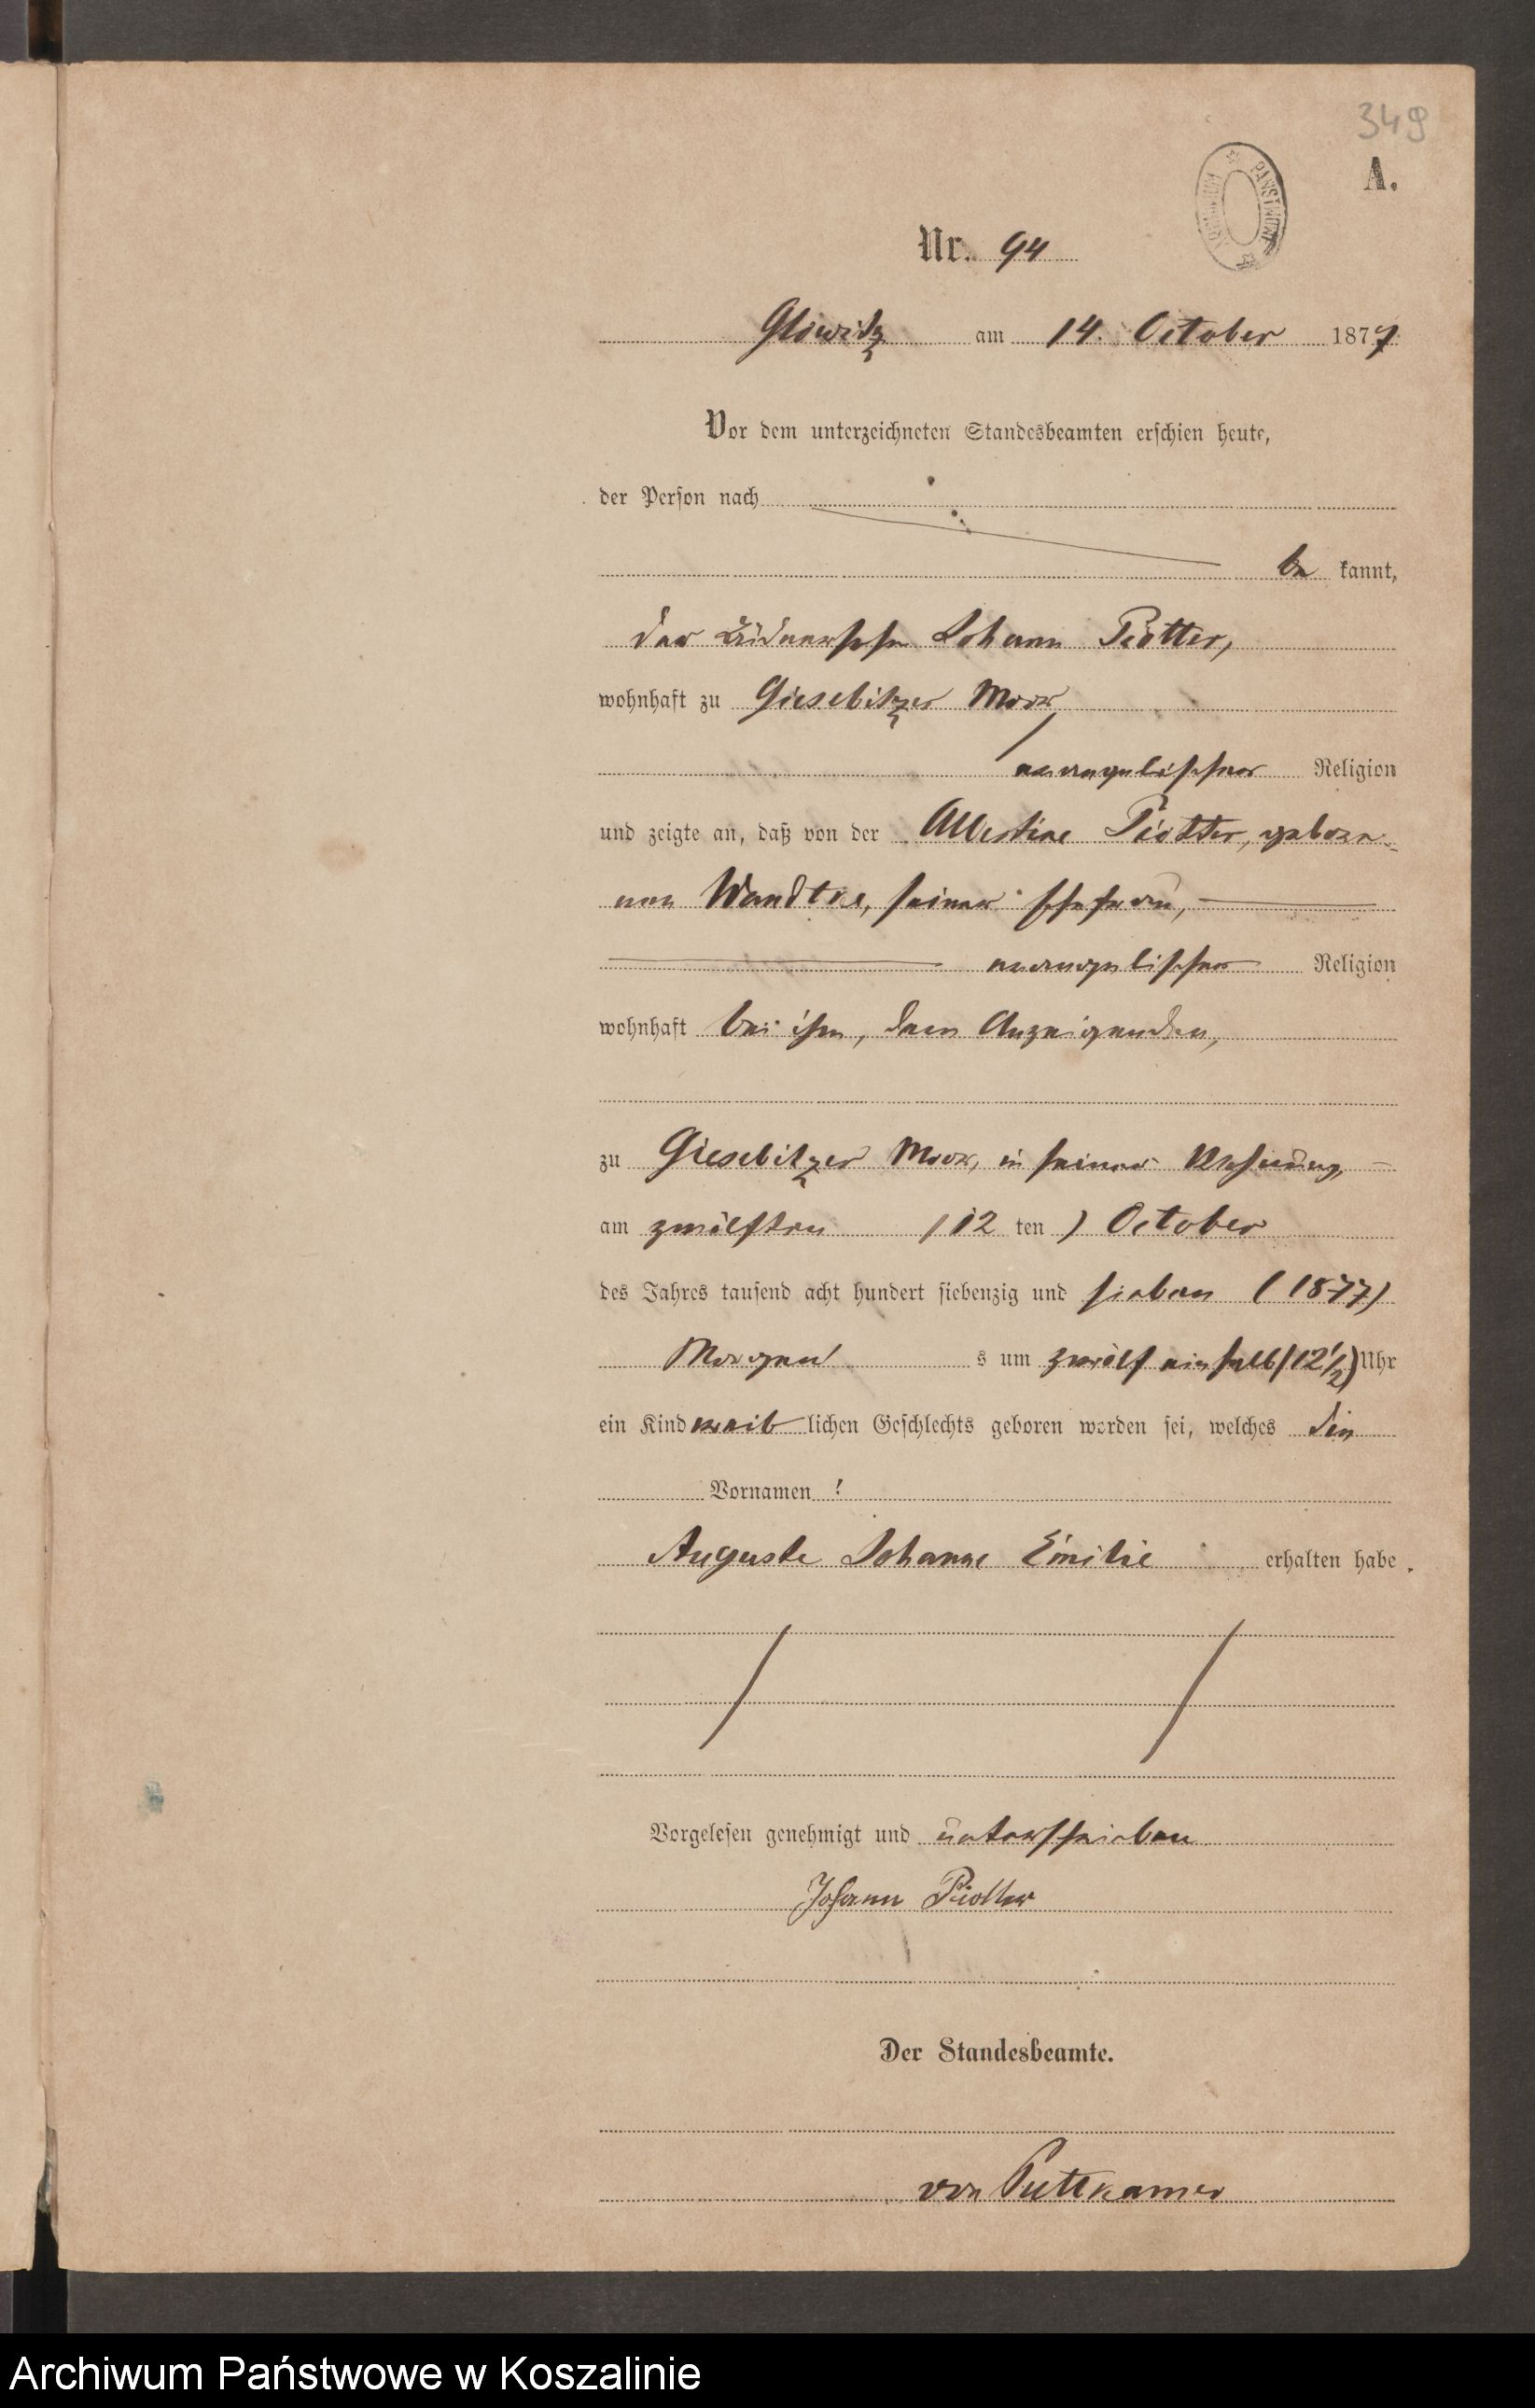 349
A.
Nr. 94
Glowitz am 14. October 1877
Vor dem unterzeichneten Standesbeamten erschien heute,
der Person nach
be kannt,
der Johann Piotter,
wohnhaft zu Giesebitzer Moor
evangelischer Religion
und zeigte an, daß von der Albertine Piotter, gebore-
nen Wandtke, seiner Ehefrau,
evangelischer Religion
wohnhaft bei ihm, dem Anzeigenden,
zu Giesebitzer Moor, in seiner Wohnung,
am zwölften (12 ten) October
des Jahres tausend acht hundert siebenzig und sieben (1877)
Morgen s um zwölf einhalb (12 1/2) Uhr
ein Kind weib lichen Geschlechts geboren worden sei, welches die
Vornamen :
Auguste Johanne Emilie erhalten habe.
Vorgelesen genehmigt und unterschrieben
Johann Piotter
Der Standesbeamte.
von Puttkamer
Archiwum Państwowe w Koszalinie